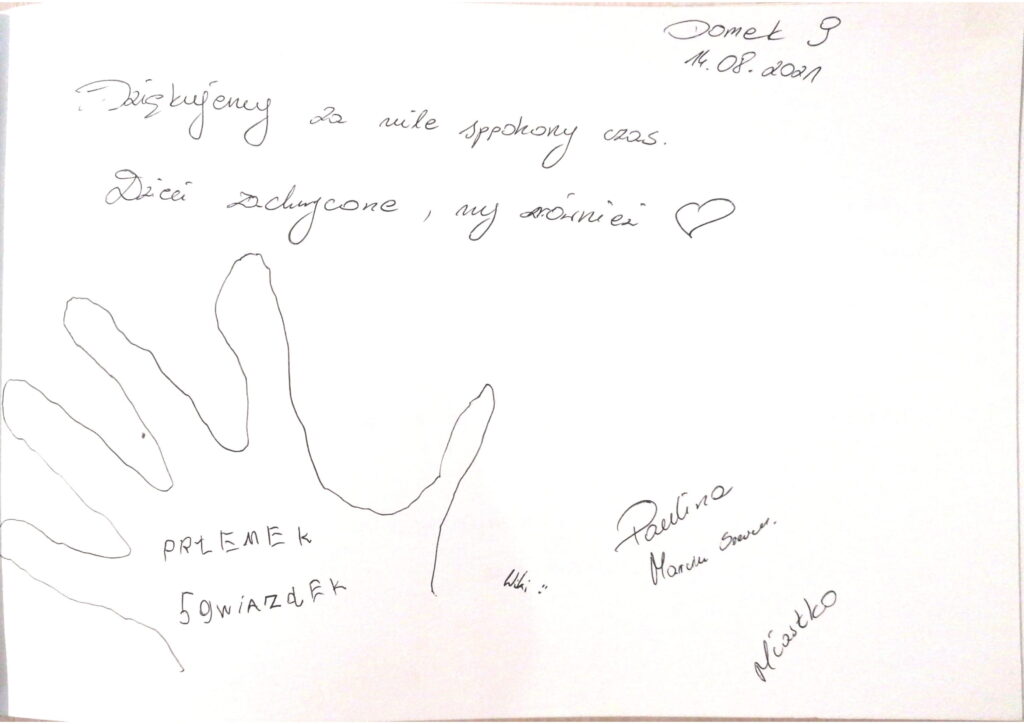 Domek 9
14.08.2021
Dziękujemy za miłe sppokony czas.
Dzieci zachwycone, my również ♡
PRZEMEK
5 GWIAZDEK
Paulina
Marcin
Miastko